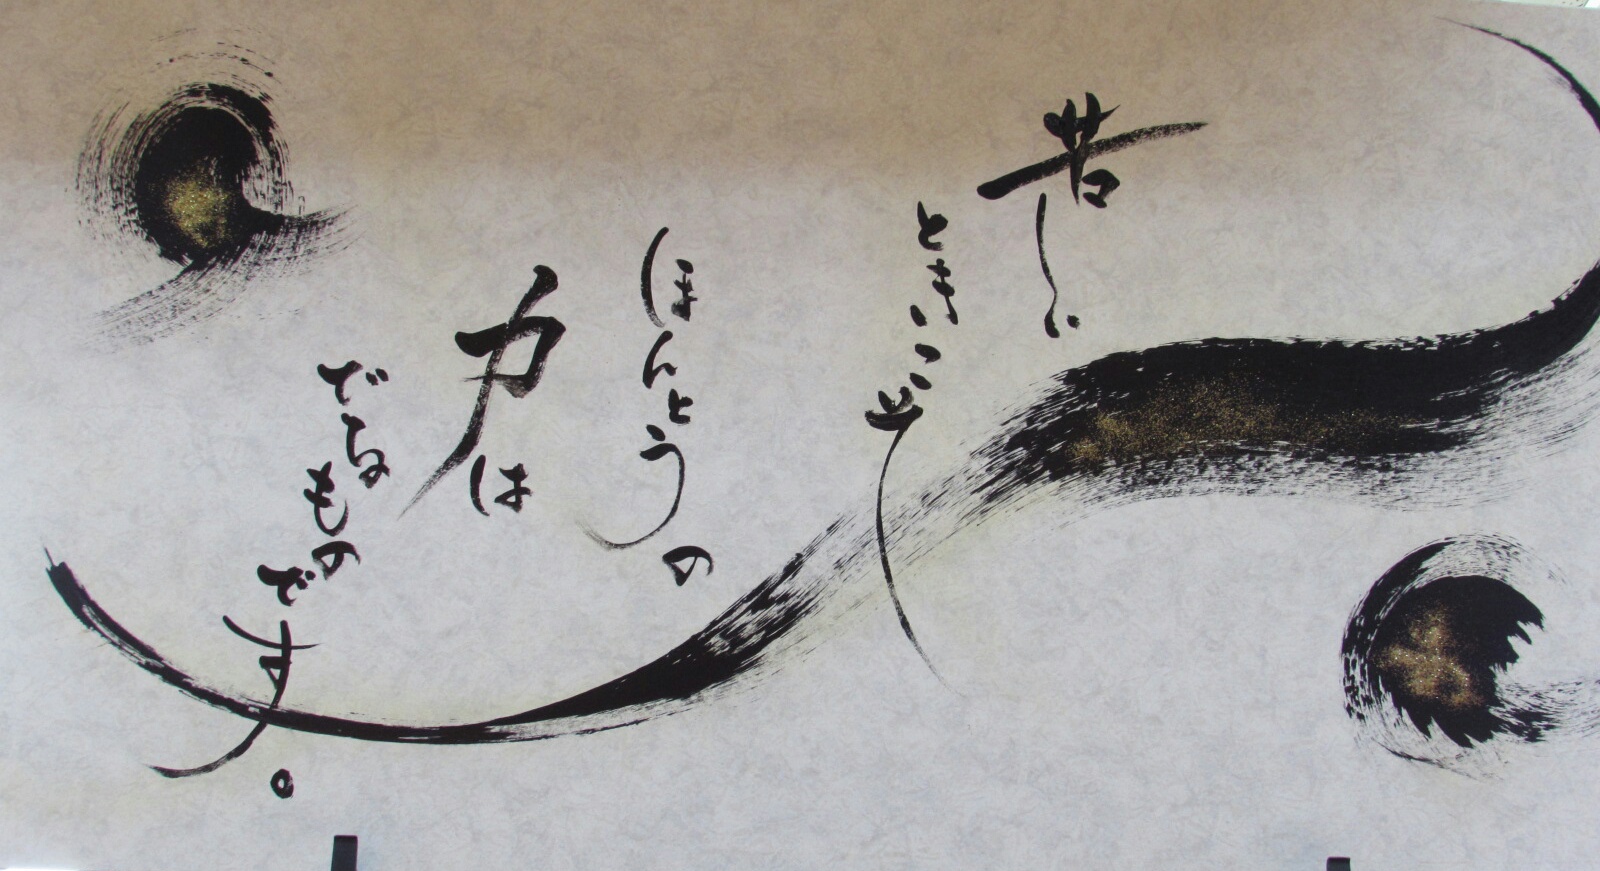 苦しい
ときにこそ
ほんとうの
力は
でるもの
です。